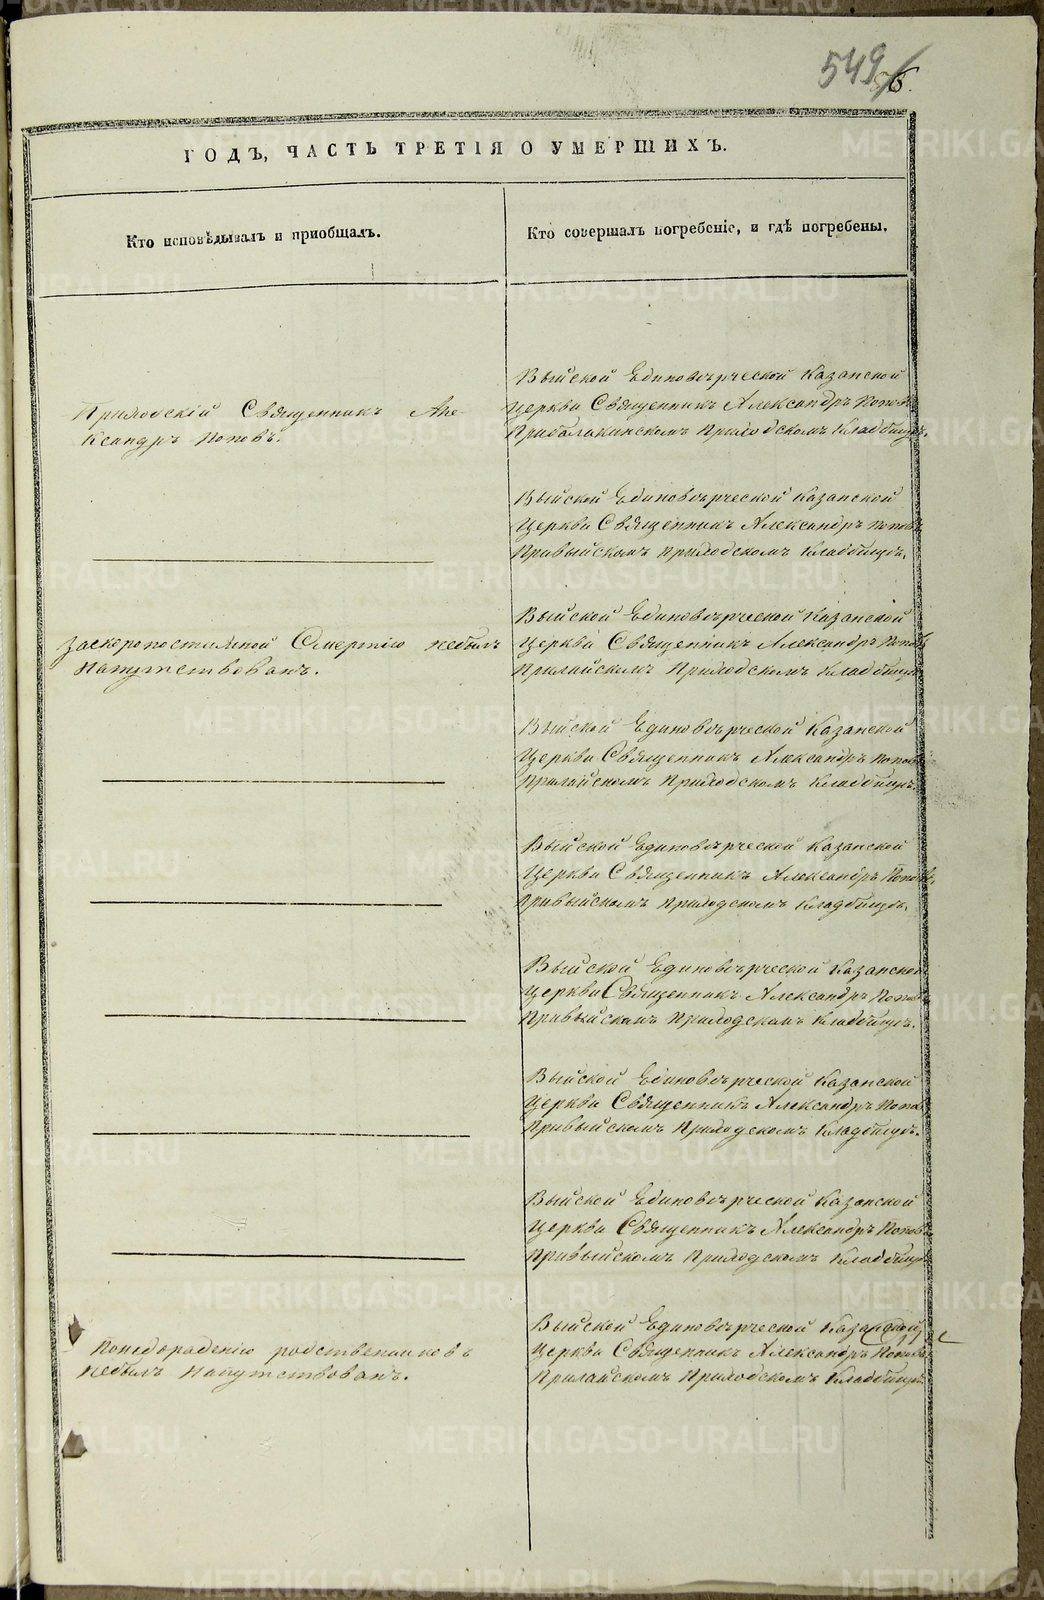 549
ГОДЪ, ЧАСТЬ ТРЕТІЯ О УМЕРШИХЪ.
Кто исповѣдывалъ и приобщалъ.
Кто совершалъ погребеніе, и гдѣ погребены.
Приходскій Священникъ Але-
ксандръ Поповъ.
Выйской Единовѣрческой Казанской
Церкви Священникъ Александръ Поповъ
Приходскомъ Кладбищѣ.
Выйской Единовѣрческой Казанской
Церкви Священникъ Александръ Поповъ
Привыйскомъ Приходскомъ Кладбищѣ.
Заскоропостижной Смертію небылъ
Напутствованъ.
Выйской Единовѣрческой Казанской
Церкви Священникъ Александръ Поповъ
Прилайскомъ Приходскомъ Кладбищѣ
Выйской Единовѣрческой Казанской
Церкви Священникъ Александръ Поповъ
Прилайскомъ Приходскомъ Кладбищѣ.
Выйской Единовѣрческой Казанской
Церкви Священникъ Александръ Поповъ,
Привыйскомъ Приходскомъ Кладбищѣ.
Выйской Единовѣрческой Казанской
Церкви Священникъ Александръ Поповъ
Привыйскомъ Приходскомъ Кладбищѣ.
Выйской Единовѣрческой Казанской
Церкви Священникъ Александръ Поповъ
Привыйскомъ Приходскомъ Кладбищѣ.
Выйской Единовѣрческой Казанской
Церкви Священникъ Александръ Поповъ
Привыйскомъ Приходскомъ Кладбищѣ
Понедорадению родственниковъ
Небылъ Напутствованъ.
Выйской Единовѣрческой Казанской
Церкви Священникъ Александръ Поповъ
Прилайскомъ Приходскомъ Кладбищѣ
METRIKI.GASO-URAL.RU